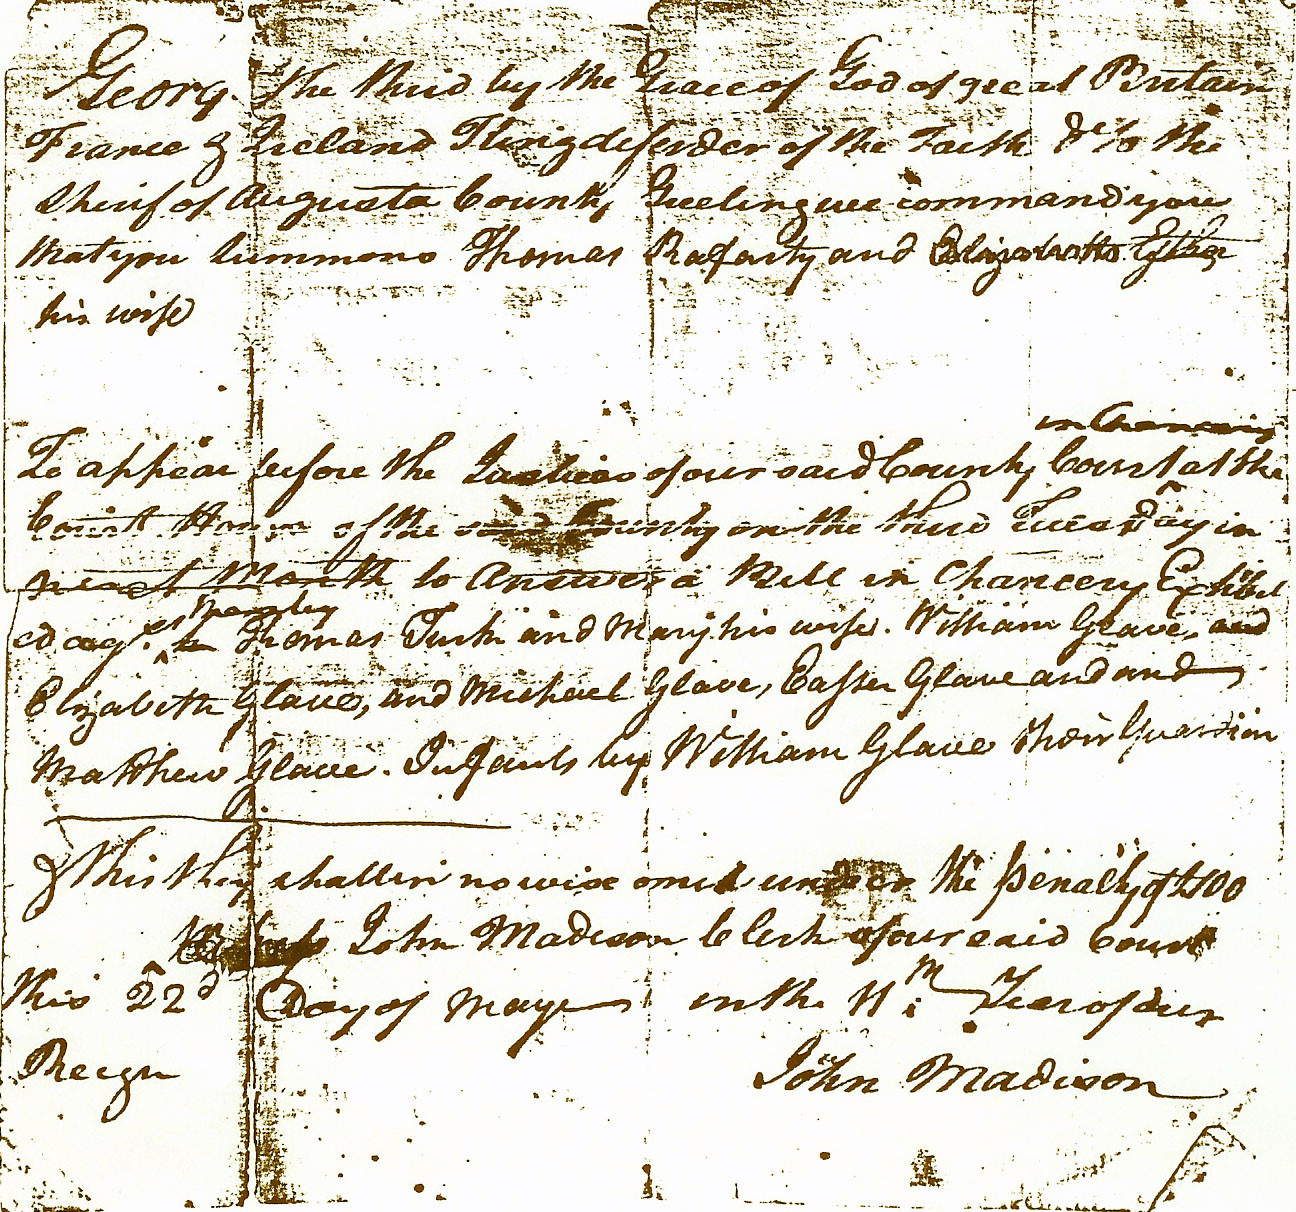 George the third by the Grace of God of great Britain
France & Ireland King defender of the Faith &c to the
Sherif of Augusta County Greeting we command you
that you summons Thomas Rafarty and Elizabeth Esther
his wife
in Chancery
To appear before the Justices of our said County Court at the
Court House of the said County on the third Tuesday in
next Month to Answer a Bill in Chancery Exhibit
ed agt. them by
Thomas Turk and Mary his wife. William Glave, and
Elizabeth Glave, and Michael Glave, Easter Glave and and
Matthew Glave. Infants by William Glave their Guardian
& this they shall in no wise omit under the penalty of £100
Witness John Madison Clerk of our said court
this 22d Day of May in the 11th Year of our
Reign
John Madison